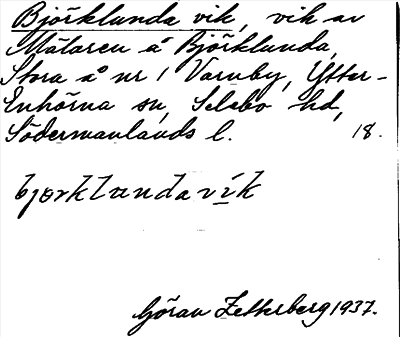 Björklunda vik, vik av
Mälaren å Björklunda,
Stora å nr 1 Varnby, Ytter-
Enhörna sn, Selebo hd,
Södermanlands l. 18.
bjørklundavik
Göran Zetterberg 1937.